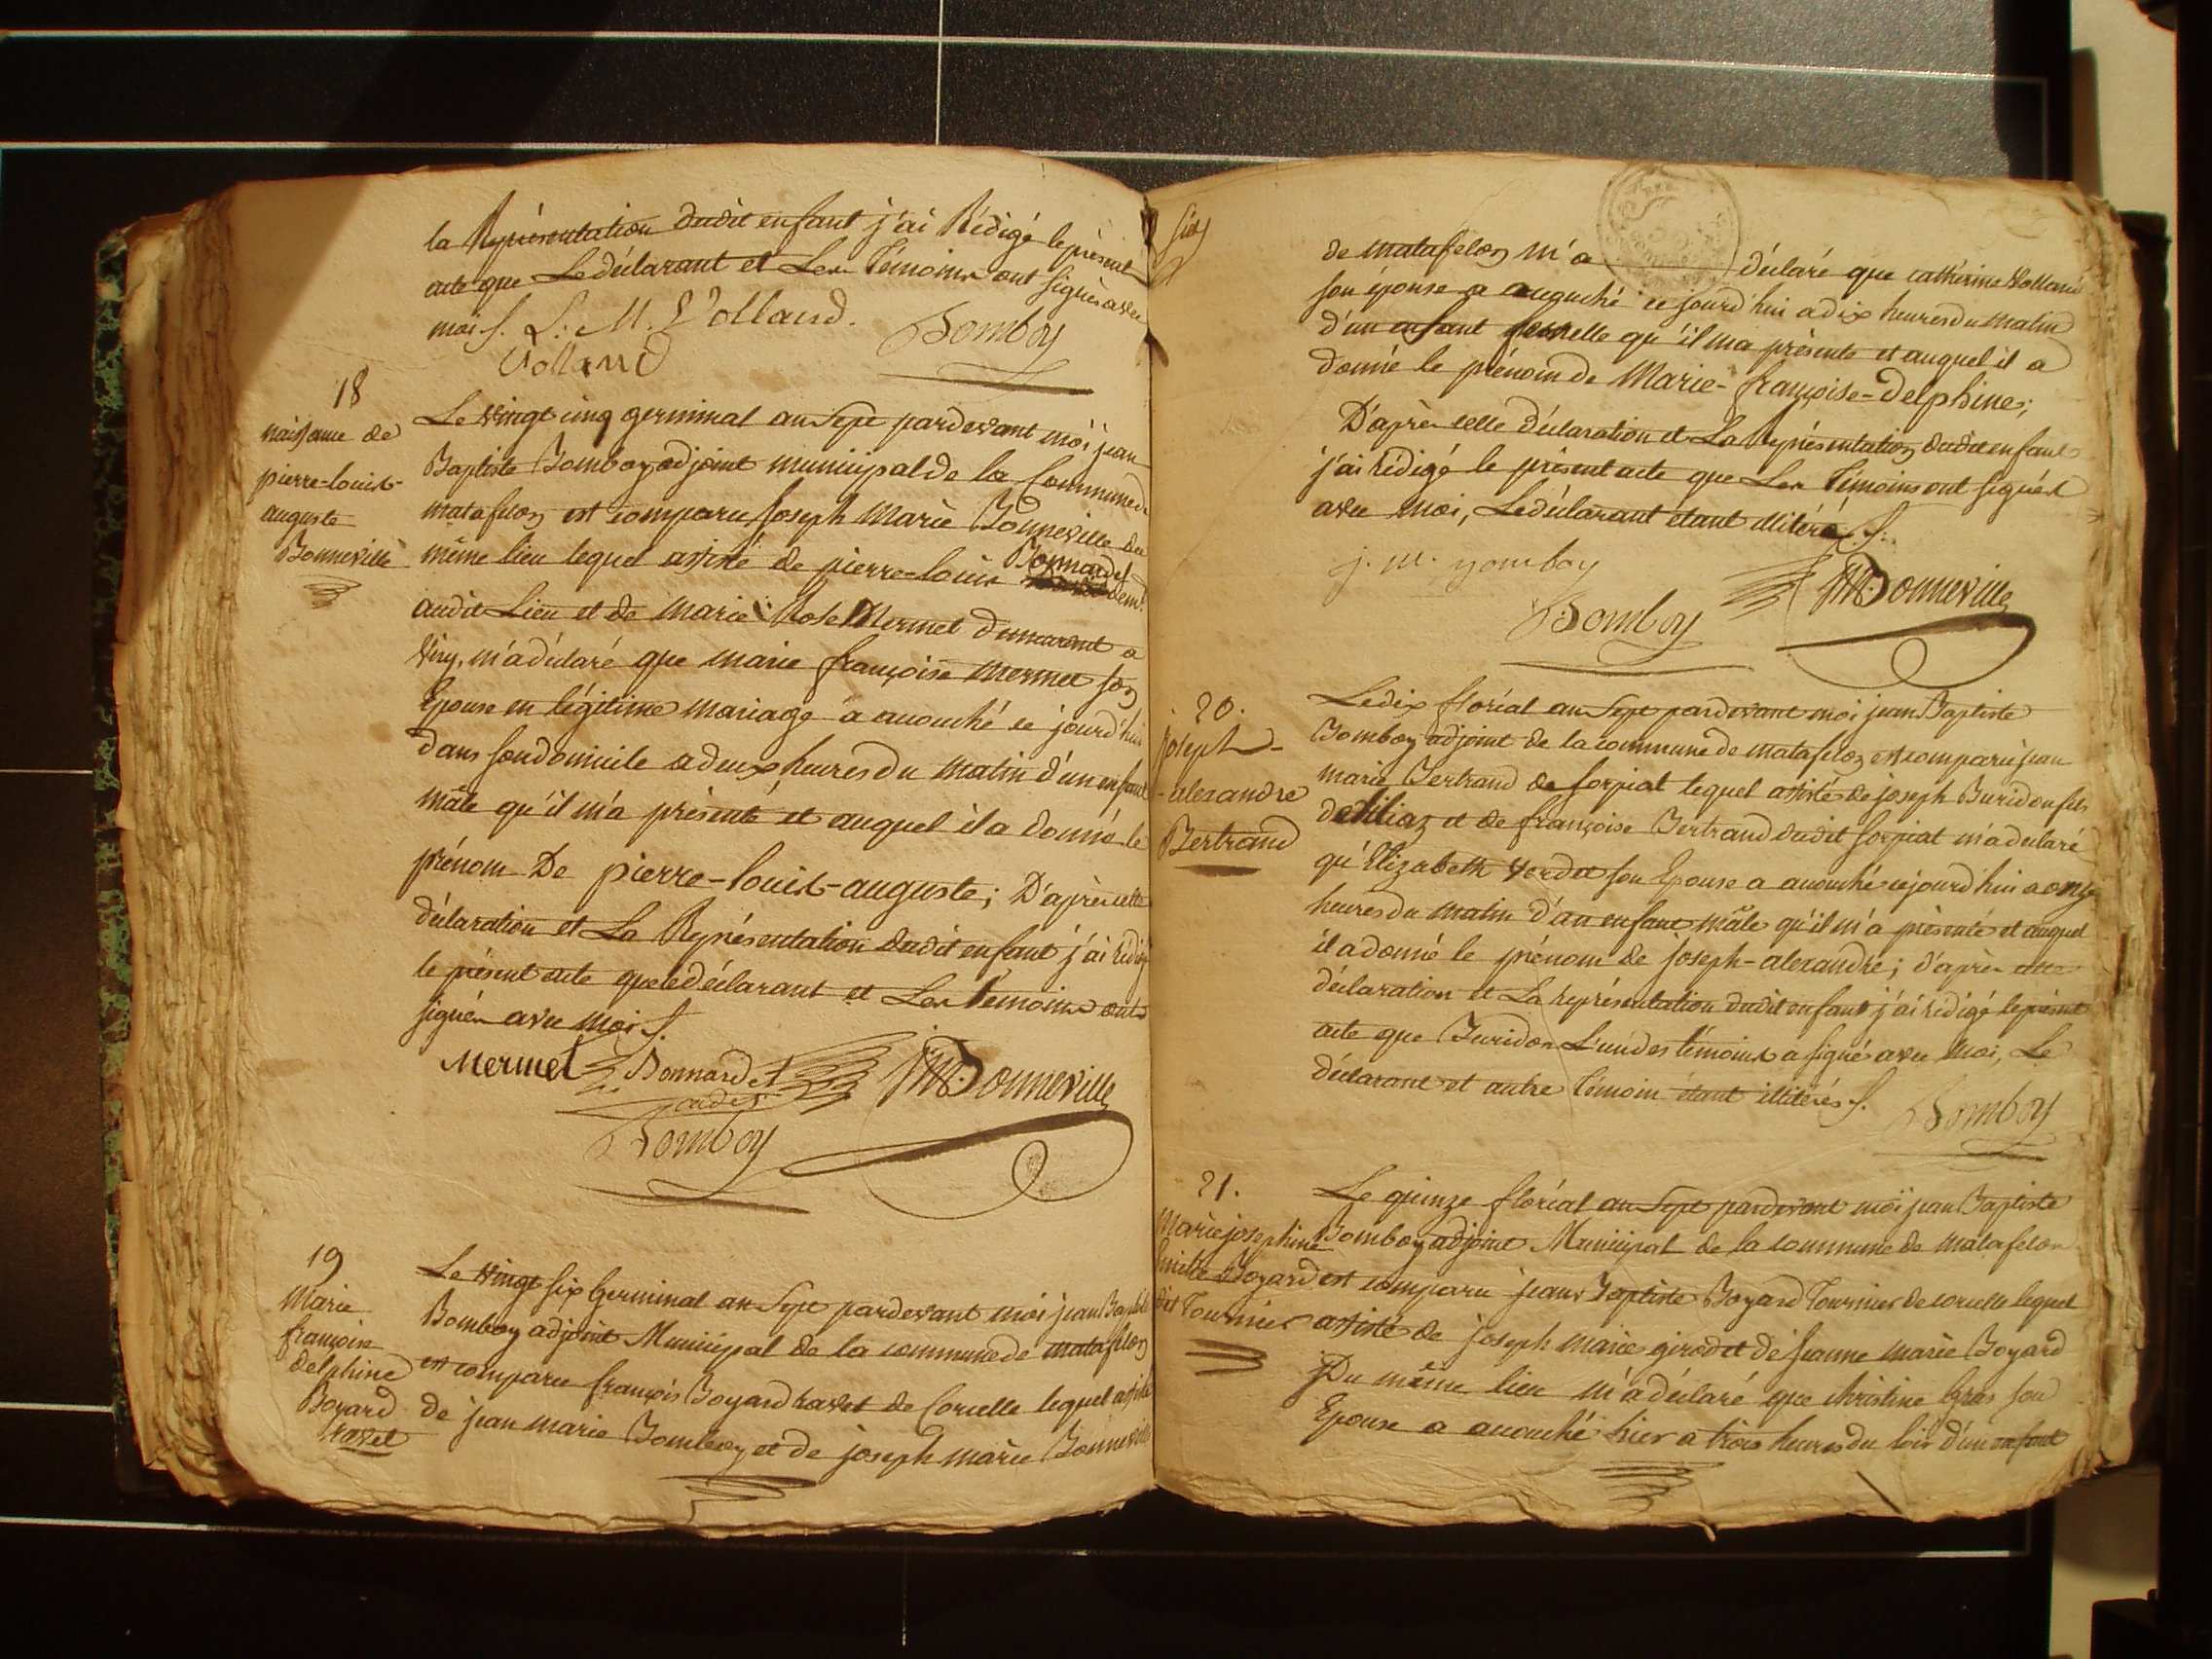 la Représentation dudit enfant j'ai Rédigé le présent
acte que Le déclarant et Les Témoins ont signés avec
moi f. L: M. Volland. Bomboy
Volland
18
naissance de
pierre-louis-
auguste
Bonneville
Le vingt cinq germinal an Sept pardevant moi jean
Baptiste Bomboy adjoint municipal de la Commune de
matafelon est comparu Joseph Marie Bonneville du
même lieu lequel assisté de pierre-louis Bonnardet dem.t
audit Lieu et de Marie Rose Mermet demeurant a
Viry, m'a déclaré que marie françoise Mermet son
Epouse en légitime mariage a acouché ce jourd'hui
dans son domicile a deux heures du matin d'un enfant
mâle qu'il m'a présenté et auquel il a donné le
prénom De pierre-louis-auguste; D'après cette
déclaration et La Représentation dudit enfant j'ai rédigé
le présent acte que le déclarant et Les Témoins ont
signés avec moi f.
Mermet Bonnardet JM Bonneville
cadet
Bomboy
19
Marie
françoise
delphine
Boyard
ravet
Le vingt six Germinal an Sept pardevant moi jean Baptiste
Bomboy adjoint Municipal de la commune de matafelon
est comparu françois Boyard ravet de Corcelle lequel assisté
de jean marie Bomboy et de joseph marie Bonneville
de matafelon m'a déclaré que catherine Volland
son épouse a acouché ce jourd'hui a dix heures du matin
d'un enfant femelle qu'il m'a présenté et auquel il a
donné le prénom de Marie-françoise-Delphine;
D'après cette déclaration et La Représentation dudit enfant
j'ai rédigé le présent acte que Les Témoins ont signés
avec moi, Le déclarant étant illitéré f.
j. m. bomboy
Bomboy JM Bonneville
20.
Joseph-
-alexandre
Bertrand
Le dix floréal an Sept pardevant moi jean Baptiste
Bomboy adjoint de la commune de matafelon est comparu jean
marie Bertrand de sorpiat lequel assisté de joseph Buridon fils
et de françoise Bertrand dudit sorpiat m'a déclaré
qu'Elizabeth son Epouse a acouché cejourd'hui a onze
heures du matin d'un enfant mâle qu'il m'a présenté et auquel
il a donné le prénom de joseph-alexandre; d'après cette
déclaration et La représentation dudit enfant j'ai rédigé le présent
acte que Buridon L'un des témoins a signé avec moi, Le
déclarant et autre Témoin étant illitérés f.
Bomboy
21.
Marie josephine
Boyard
dit Tournier
Le quinze floréal an Sept pardevant moi jean Baptiste
Bomboy adjoint Municipal de la commune de matafelon
est comparu jean Baptiste Boyard Tournier de corcelle lequel
assisté de joseph marie girod et de Jeanne marie Boyard
Du même lieu m'a déclaré que christine Gras son
Epouse a acouché hier a trois heures du soir d'un enfant